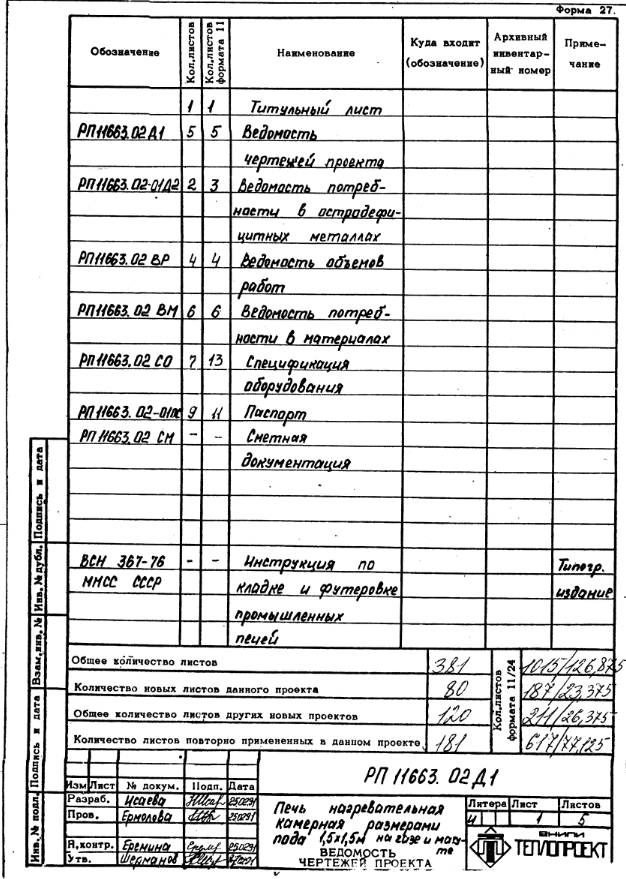 Форма 27.
Обозначение
Кол.листов
Кол.листов формата 11
Наименование
Куда входит (обозначение)
Архивный инвентар-ный номер
Приме-чание
1 1 Титульный лист
РП11663.02Д1 5 5 Ведомость
чертежей проекта
РП11663.02-01Д2 2 3 Ведомость потреб-
ности в острадефи-
цитных металлах
РП11663.02 ВР 4 4 Ведомость объемов
работ
РП11663.02 ВМ 6 6 Ведомость потреб-
ности в материалах
РП11663.02 СО 7 13 Спецификация
оборудования
РП11663.02-01ПС 9 11 Паспорт
РП11663.02 СМ - - Сметная
документация
ВСН 367-76 - - Инструкция по Типогр.
ММСС СССР кладке и футеровке издание
промышленных
печей
Общее количество листов 381 1015/126,875
Количество новых листов данного проекта 80 187/23,375
Общее количество листов других новых проектов 120 211/26,375
Количество листов повторно примененных в данном проекте 181 617/77,125
Кол.листов формата 11/24
РП 11663.02Д1
Изм Лист № докум. Подп. Дата
Разраб. Исаева
Пров. Ермолова
Н.контр. Еремина
Утв. Шерманов
Печь нагревательная
камерная размерами
пода 1,5х1,5м на газе и мазу-
те
ВЕДОМОСТЬ
ЧЕРТЕЖЕЙ ПРОЕКТА
Литера Лист Листов
И 1 5
ВНИПИ
ТЕПЛОПРОЕКТ
Инв.№ подл.
Подпись и дата
Взам.инв.№
Инв.№ дубл.
Подпись и дата